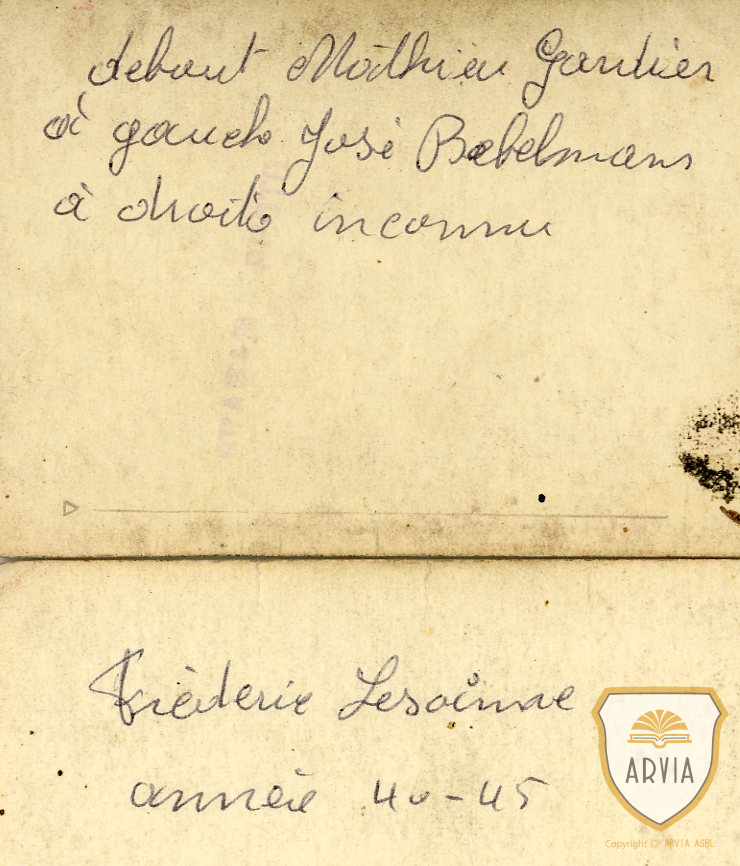 debout Mathieu Gardier
à gauche José Babelmans
à droite inconnu
Fréderic Lesoinne
année 40-45
ARVIA
Copyright © ARVIA ASBL